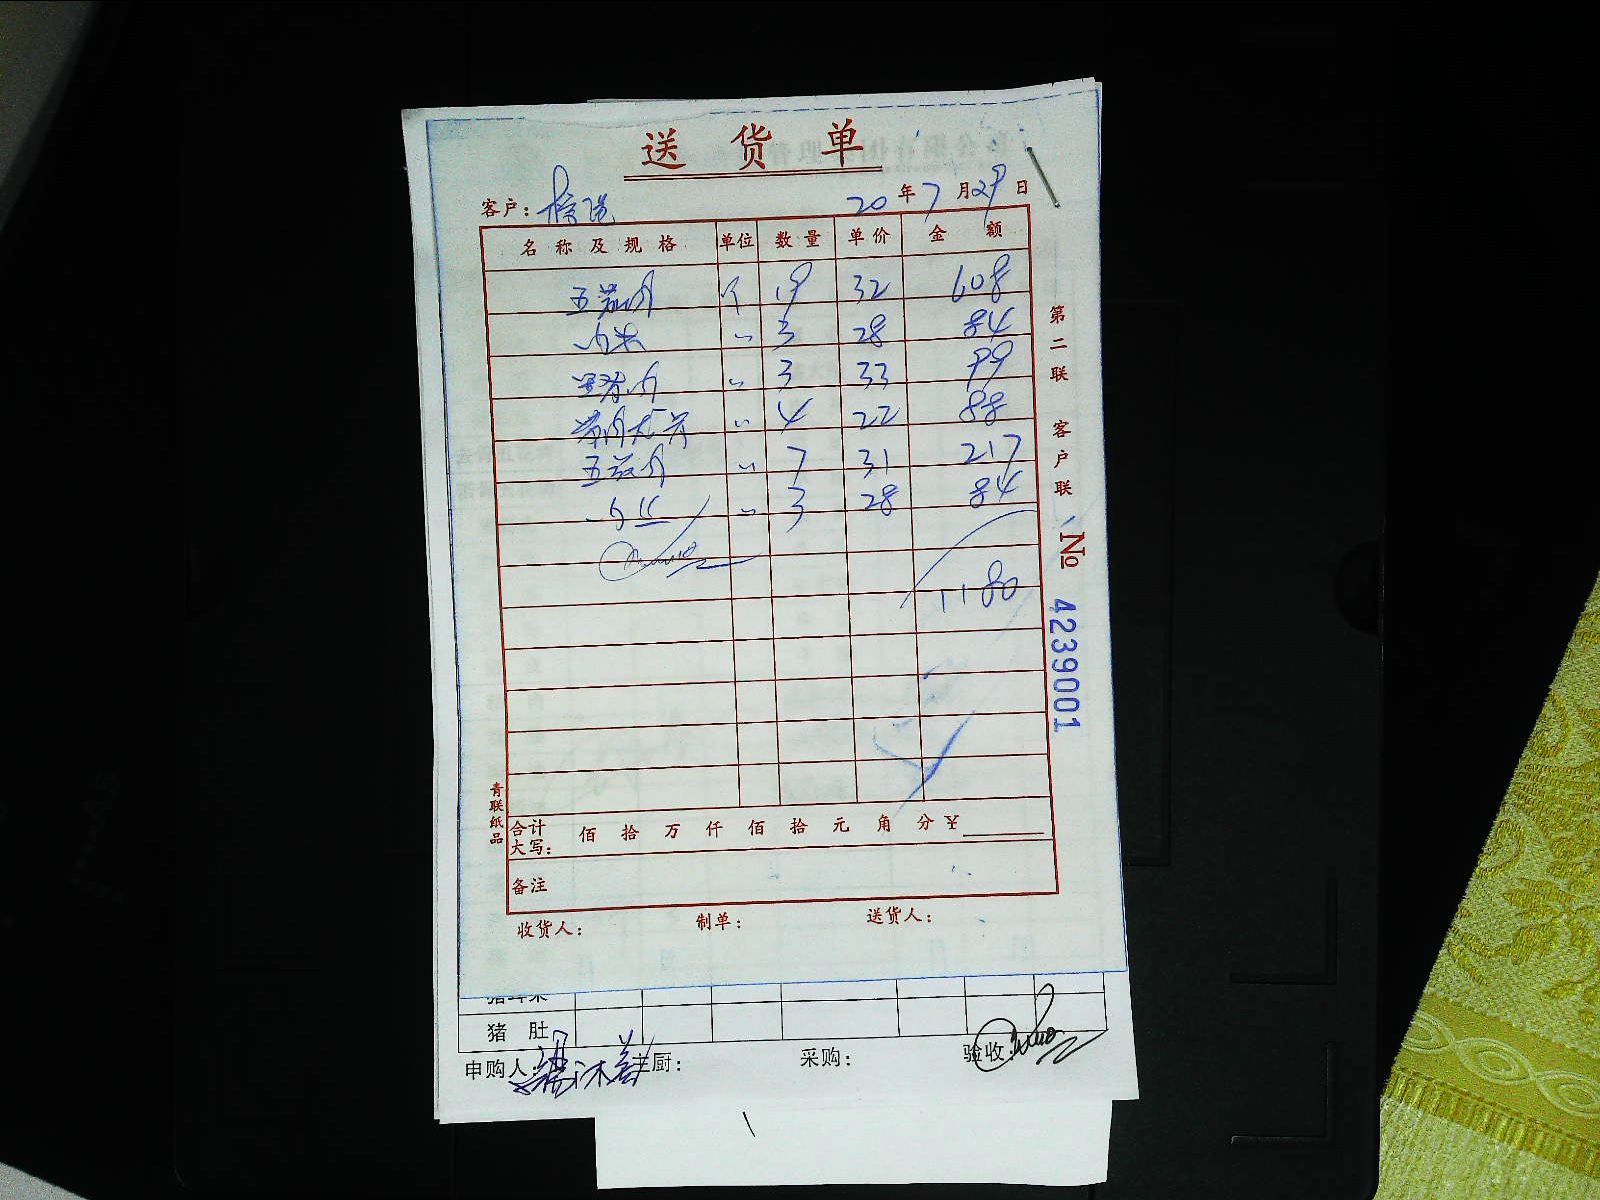 送货单
客户： 20年7月29日
名称及规格 单位 数量 单价 金额
五花肉 个 19 32 608
肉 〃 3 28 84
肉 〃 3 33 99
〃 4 22 88
五花肉 〃 7 31 217
肉 〃 3 28 84
1180
第二联 客户联
No 4239001
青联纸品
合计大写： 佰 拾 万 仟 佰 拾 元 角 分 ¥
备注
收货人： 制单： 送货人：
猪肚
申购人： 主厨： 采购： 验收：